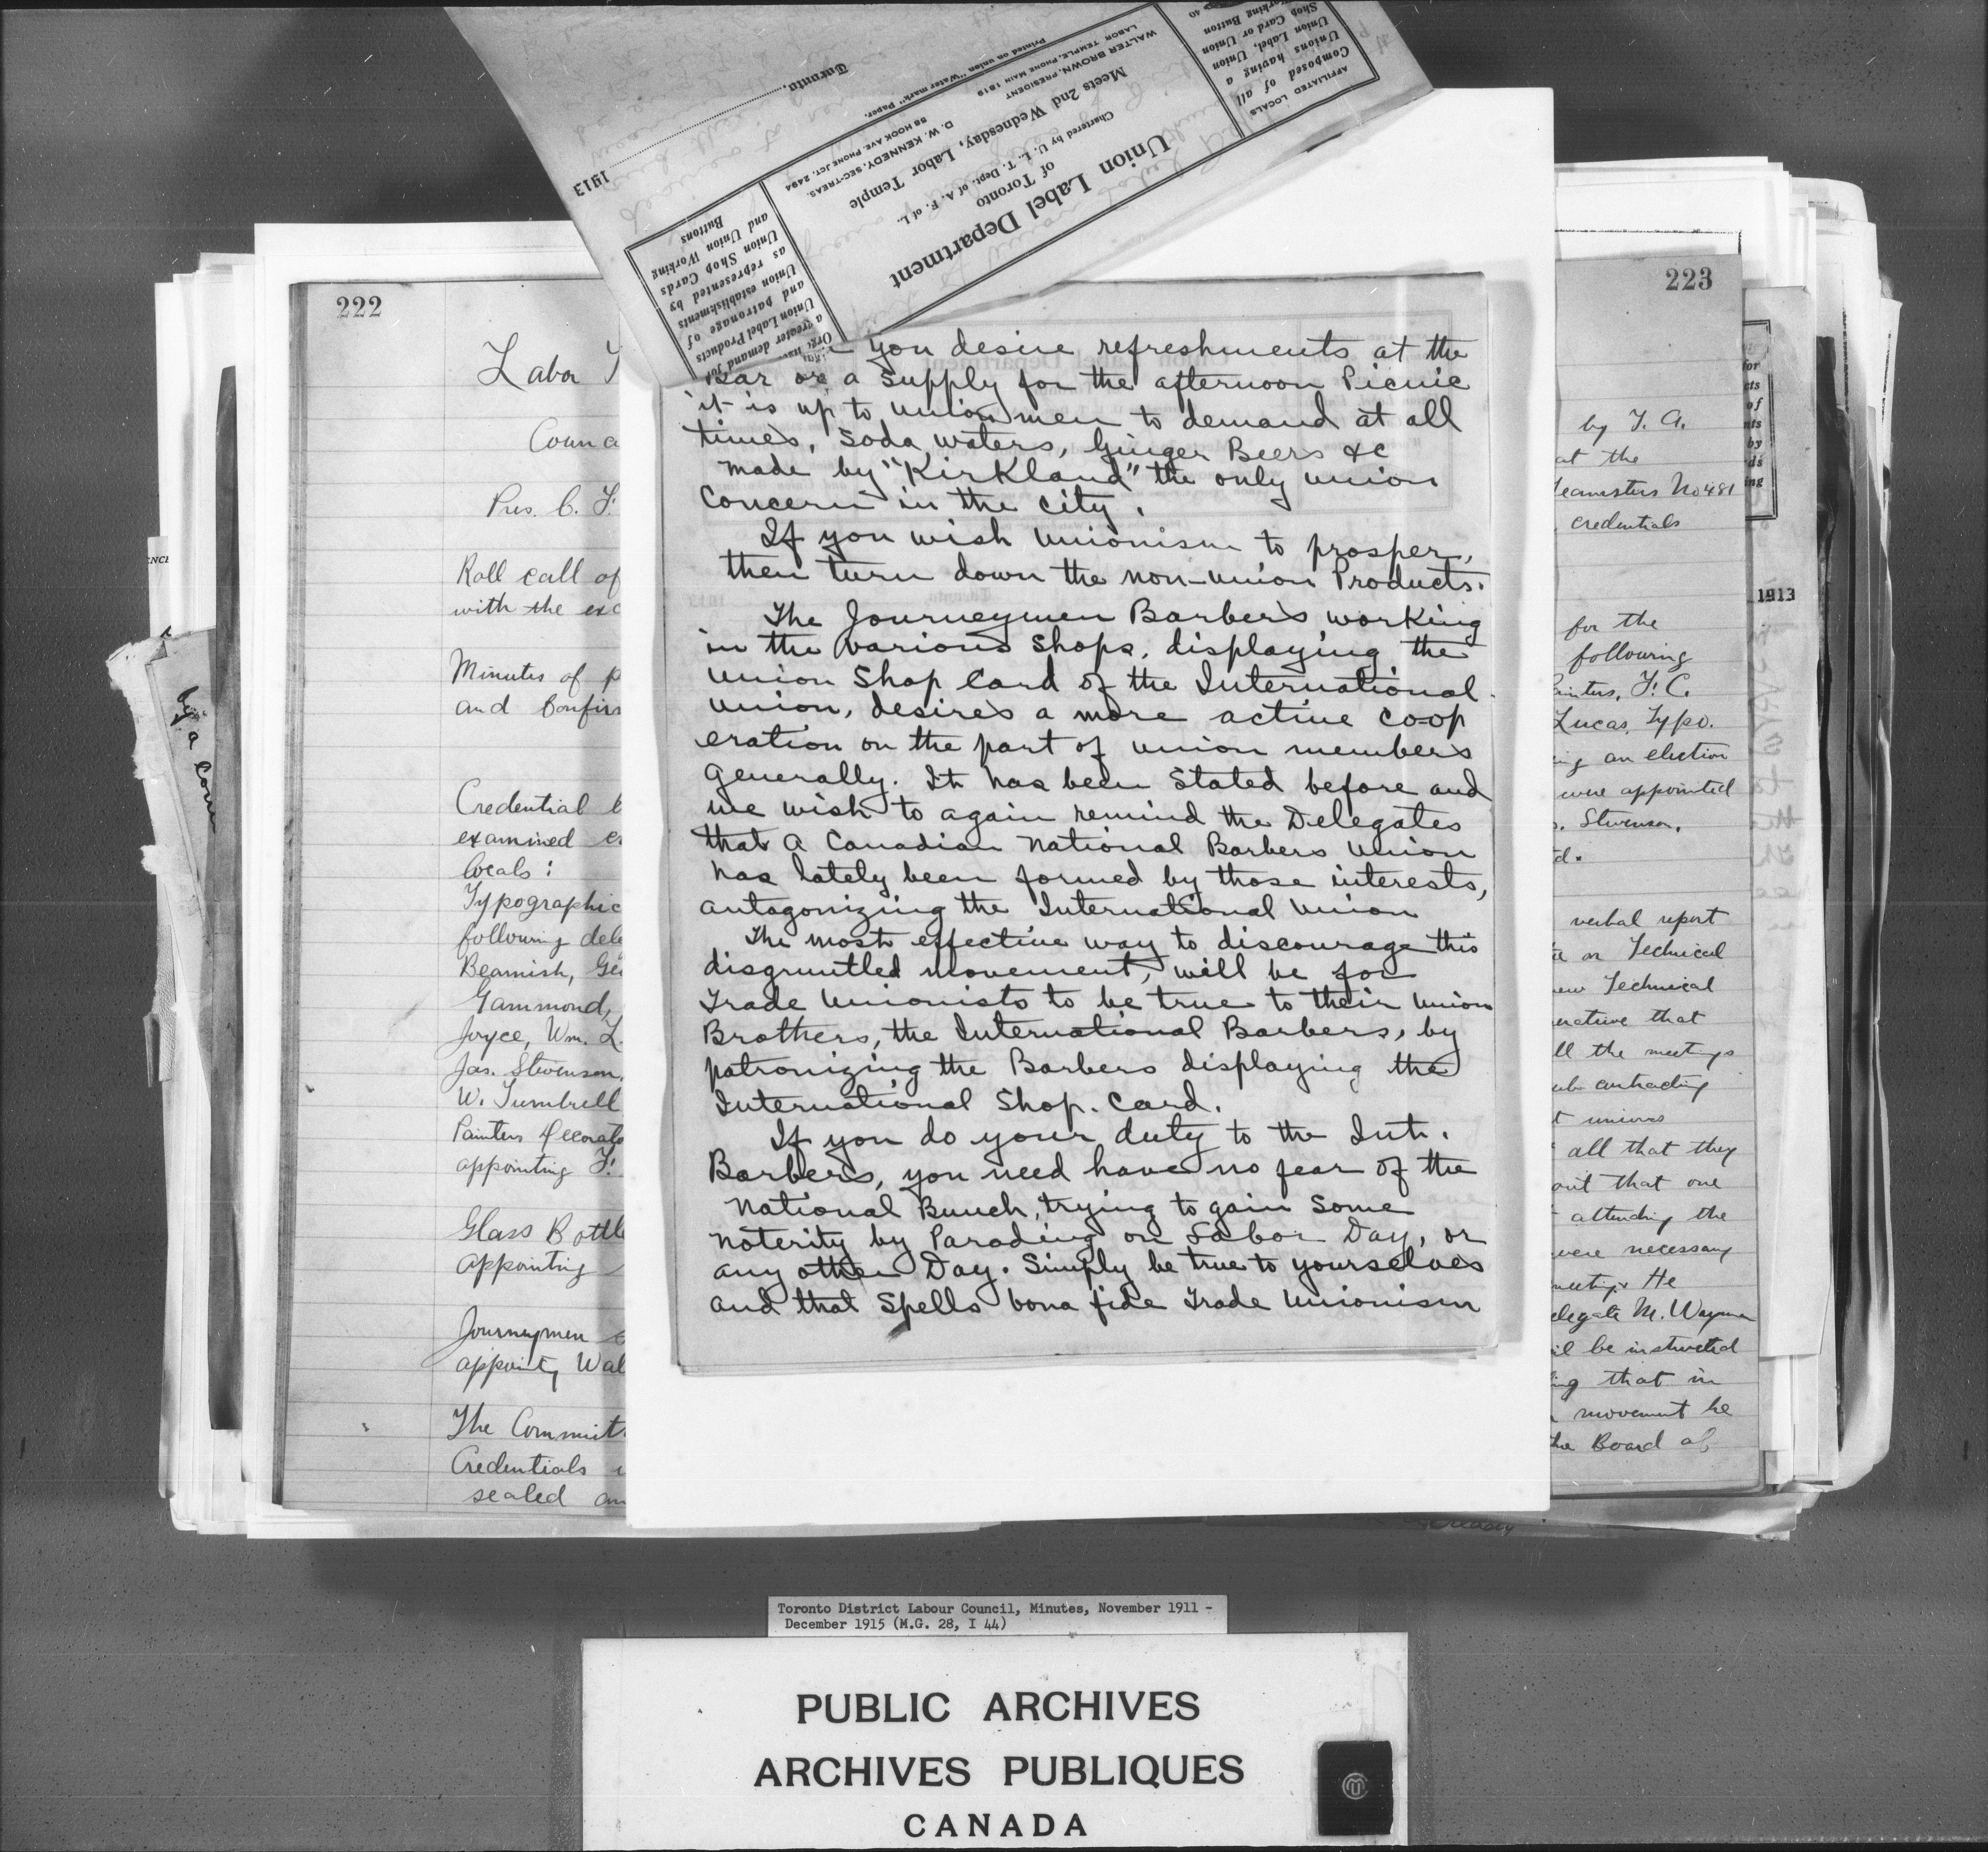 222
Labor
Pres. C. F.
Roll call of
with the exc
Minutes of
and Confir
Credential
examined
locals:
Typographic
following dele
Beamish, Geo
Gammond,
Joyce, Wm. L.
Jas. Stevenson,
W. Turnbrell
Painters Decorato
appointing F.
Glass Bottle
appointing
Journeymen
appointg Wal
The Committ
Credentials
sealed an
Union Label Department
of Toronto
Chartered by U. L. T. Dept. of A. F. of L.
Meets 2nd Wednesday, Labor Temple
WALTER BROWN, PRESIDENT
LABOR TEMPLE, PHONE MAIN 1819
D. W. KENNEDY, SEC-TREAS.
58 HOOK AVE. PHONE JCT. 2494
Printed on union "Water mark" Paper.
Toronto, 1913
AFFILIATED LOCALS
Composed of all
Unions having a
Union Label, Union
Shop Card or Union
Working Button
a greater demand for
Union Label Products
and patronage of
Union establishments
as represented by
Union Shop Cards
and Union Working
Buttons
you desire refreshments at the
Bar or a supply for the afternoon Picnic
it is up to union men to demand at all
times, soda waters, Ginger Beers &c
made by "Kirkland" the only union
concern in the city.
If you wish unionism to prosper,
then turn down the non-union Products.
The Journeymen Barbers working
in the various shops, displaying the
Union Shop Card of the International
Union, desires a more active coop
eration on the part of union members
generally. It has been stated before and
we wish to again remind the Delegates
that a Canadian National Barbers Union
has lately been formed by those interests,
antagonizing the International Union
The most effective way to discourage this
disgruntled movement, will be for
Trade Unionists to be true to their Union
Brothers, the International Barbers, by
patronizing the Barbers displaying the
International Shop. Card.
If you do your duty to the Int.
Barbers, you need have no fear of the
National Bunch, trying to gain some
noterity by Parading on Labor Day, or
any other Day. Simply be true to yourselves
and that spells bona fide Trade Unionism
223
by T. A.
at the
Teamsters No 481
credentials
for the
following
Painters, F. C.
Lucas, Typo.
an election
were appointed
Stevenson.
verbal report
on Technical
Technical
that
the meetings
contracting
unions
all that they
out that one
attending the
were necessary
meetings He
delegate M. Wayman
be instructed
that in
movement be
the Board of
1913
Toronto District Labour Council, Minutes, November 1911 -
December 1915 (M.G. 28, I 44)
PUBLIC ARCHIVES
ARCHIVES PUBLIQUES
CANADA